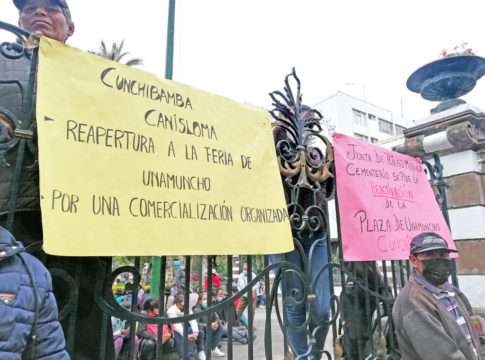 CUNCHIBAMBA
CANISLOMA
REAPERTURA A LA FERIA DE
UNAMUNCHO
POR UNA COMERCIALIZACIÓN ORGANIZADA
JUNTA DE RIEGO MADRE
CEMENTERIO SE PIDE LA
REACTIVACIÓN
DE LA
PLAZA DE UNAMUNCHO